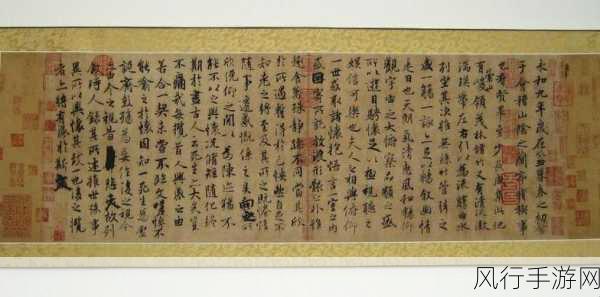 永和九年歲在癸丑暮春之初會
于會稽山陰之蘭亭脩稧事
也群賢畢至少長咸集此地
有崇山峻領茂林脩竹又有清流激
湍暎帶左右引以為流觴曲水
列坐其次雖無絲竹管弦之
盛一觴一詠亦足以暢敘幽情
是日也天朗氣清惠風和暢仰
觀宇宙之大俯察品類之盛
所以遊目騁懷足以極視聽之
娛信可樂也夫人之相與俯仰
一世或取諸懷抱悟言一室之內
或因寄所託放浪形骸之外雖
趣舍萬殊靜躁不同當其欣
於所遇暫得於己怏然自足不
知老之將至及其所之既惓情
隨事遷感慨係之矣向之所
欣俛仰之閒以為陳迹猶不
能不以之興懷況脩短隨化終
期於盡古人云死生亦大矣豈
不痛哉每攬昔人興感之由
若合一契未嘗不臨文嗟悼不
能喻之於懷固知一死生為虛
誕齊彭殤為妄作後之視今
亦由今之視昔悲夫故列
敘時人錄其所述雖世殊事
異所以興懷其致一也後之攬
者亦將有感於斯文
风行手游网